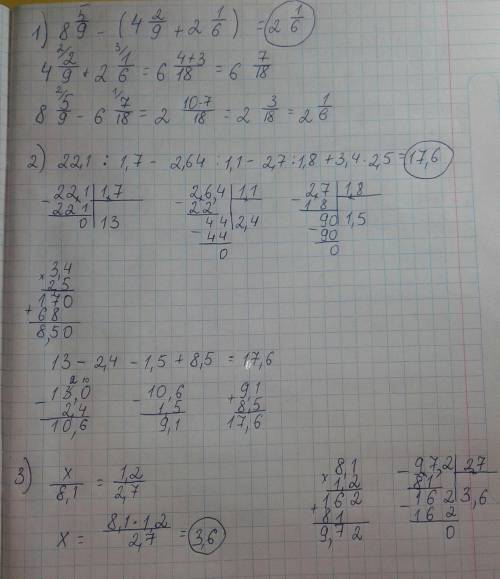 1) 8 5/9 - (4 2/9 + 2 1/6) = 2 1/6
4 2/9 + 2 1/6 = 6 4+3/18 = 6 7/18
8 5/9 - 6 7/18 = 2 10-7/18 = 2 3/18 = 2 1/6
2) 22,1 : 1,7 - 2,64 : 1,1 - 2,7 : 1,8 + 3,4 · 2,5 = 17,6
- 22,1 | 1,7
221 | 13
0
- 2,6,4 | 1,1
22 | 2,4
- 44
44
0
- 2,7 | 1,8
18 | 1,5
- 90
90
0
× 3,4
2,5
+ 170
68
8,50
13 - 2,4 - 1,5 + 8,5 = 17,6
- 13,0
2,4
10,6
- 10,6
1,5
9,1
+ 9,1
8,5
17,6
3) x/8,1 = 1,2/2,7
x = 8,1 · 1,2/2,7 = 3,6
× 8,1
1,2
+ 162
81
9,72
- 97,2 | 27
81 | 3,6
- 162
162
0